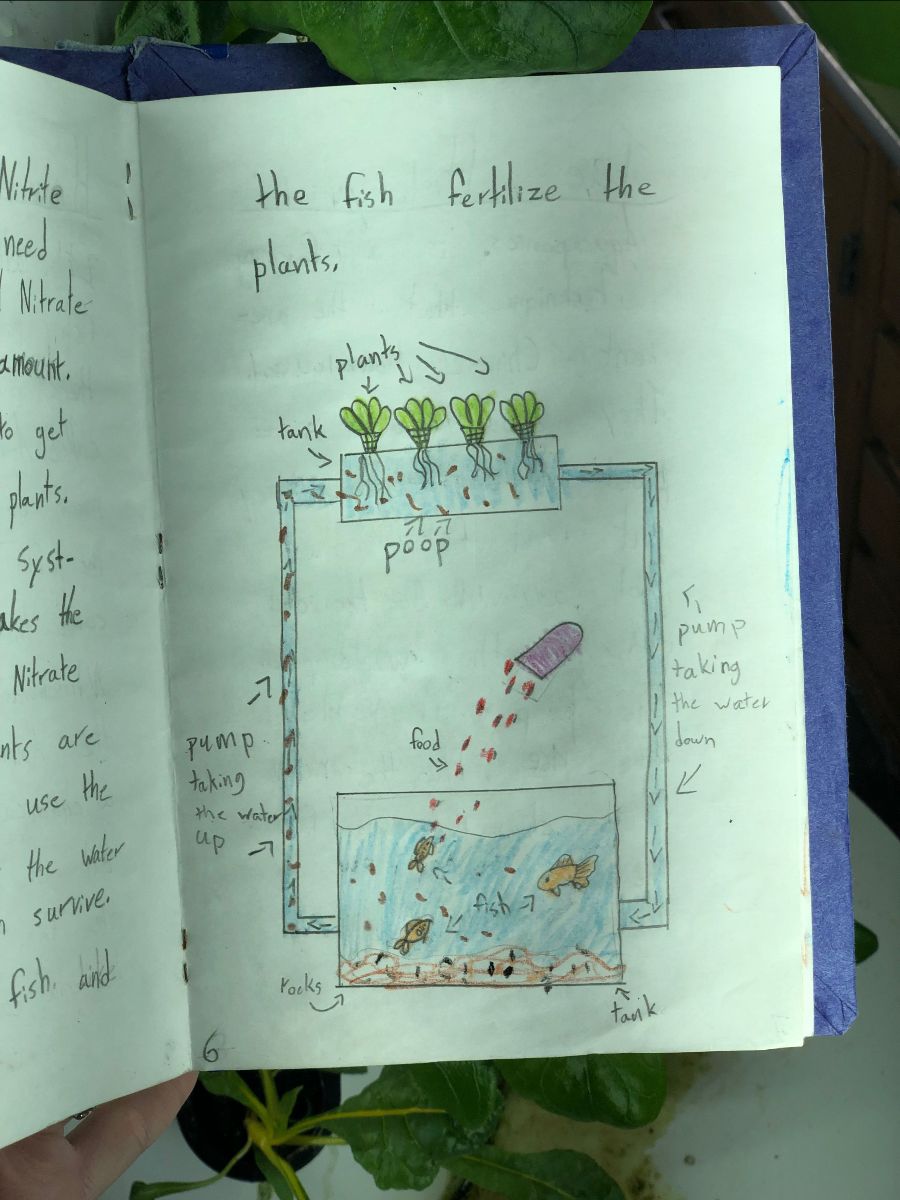 Nitrite
need
Nitrate
amount.
to get
plants.
syst-
the
Nitrate
are
use the
the water
survive.
fish and
the fish fertilize the
plants.
plants
tank
poop
pump
taking
the water
down
food
pump
taking
the water
up
fish
rocks
tank
6